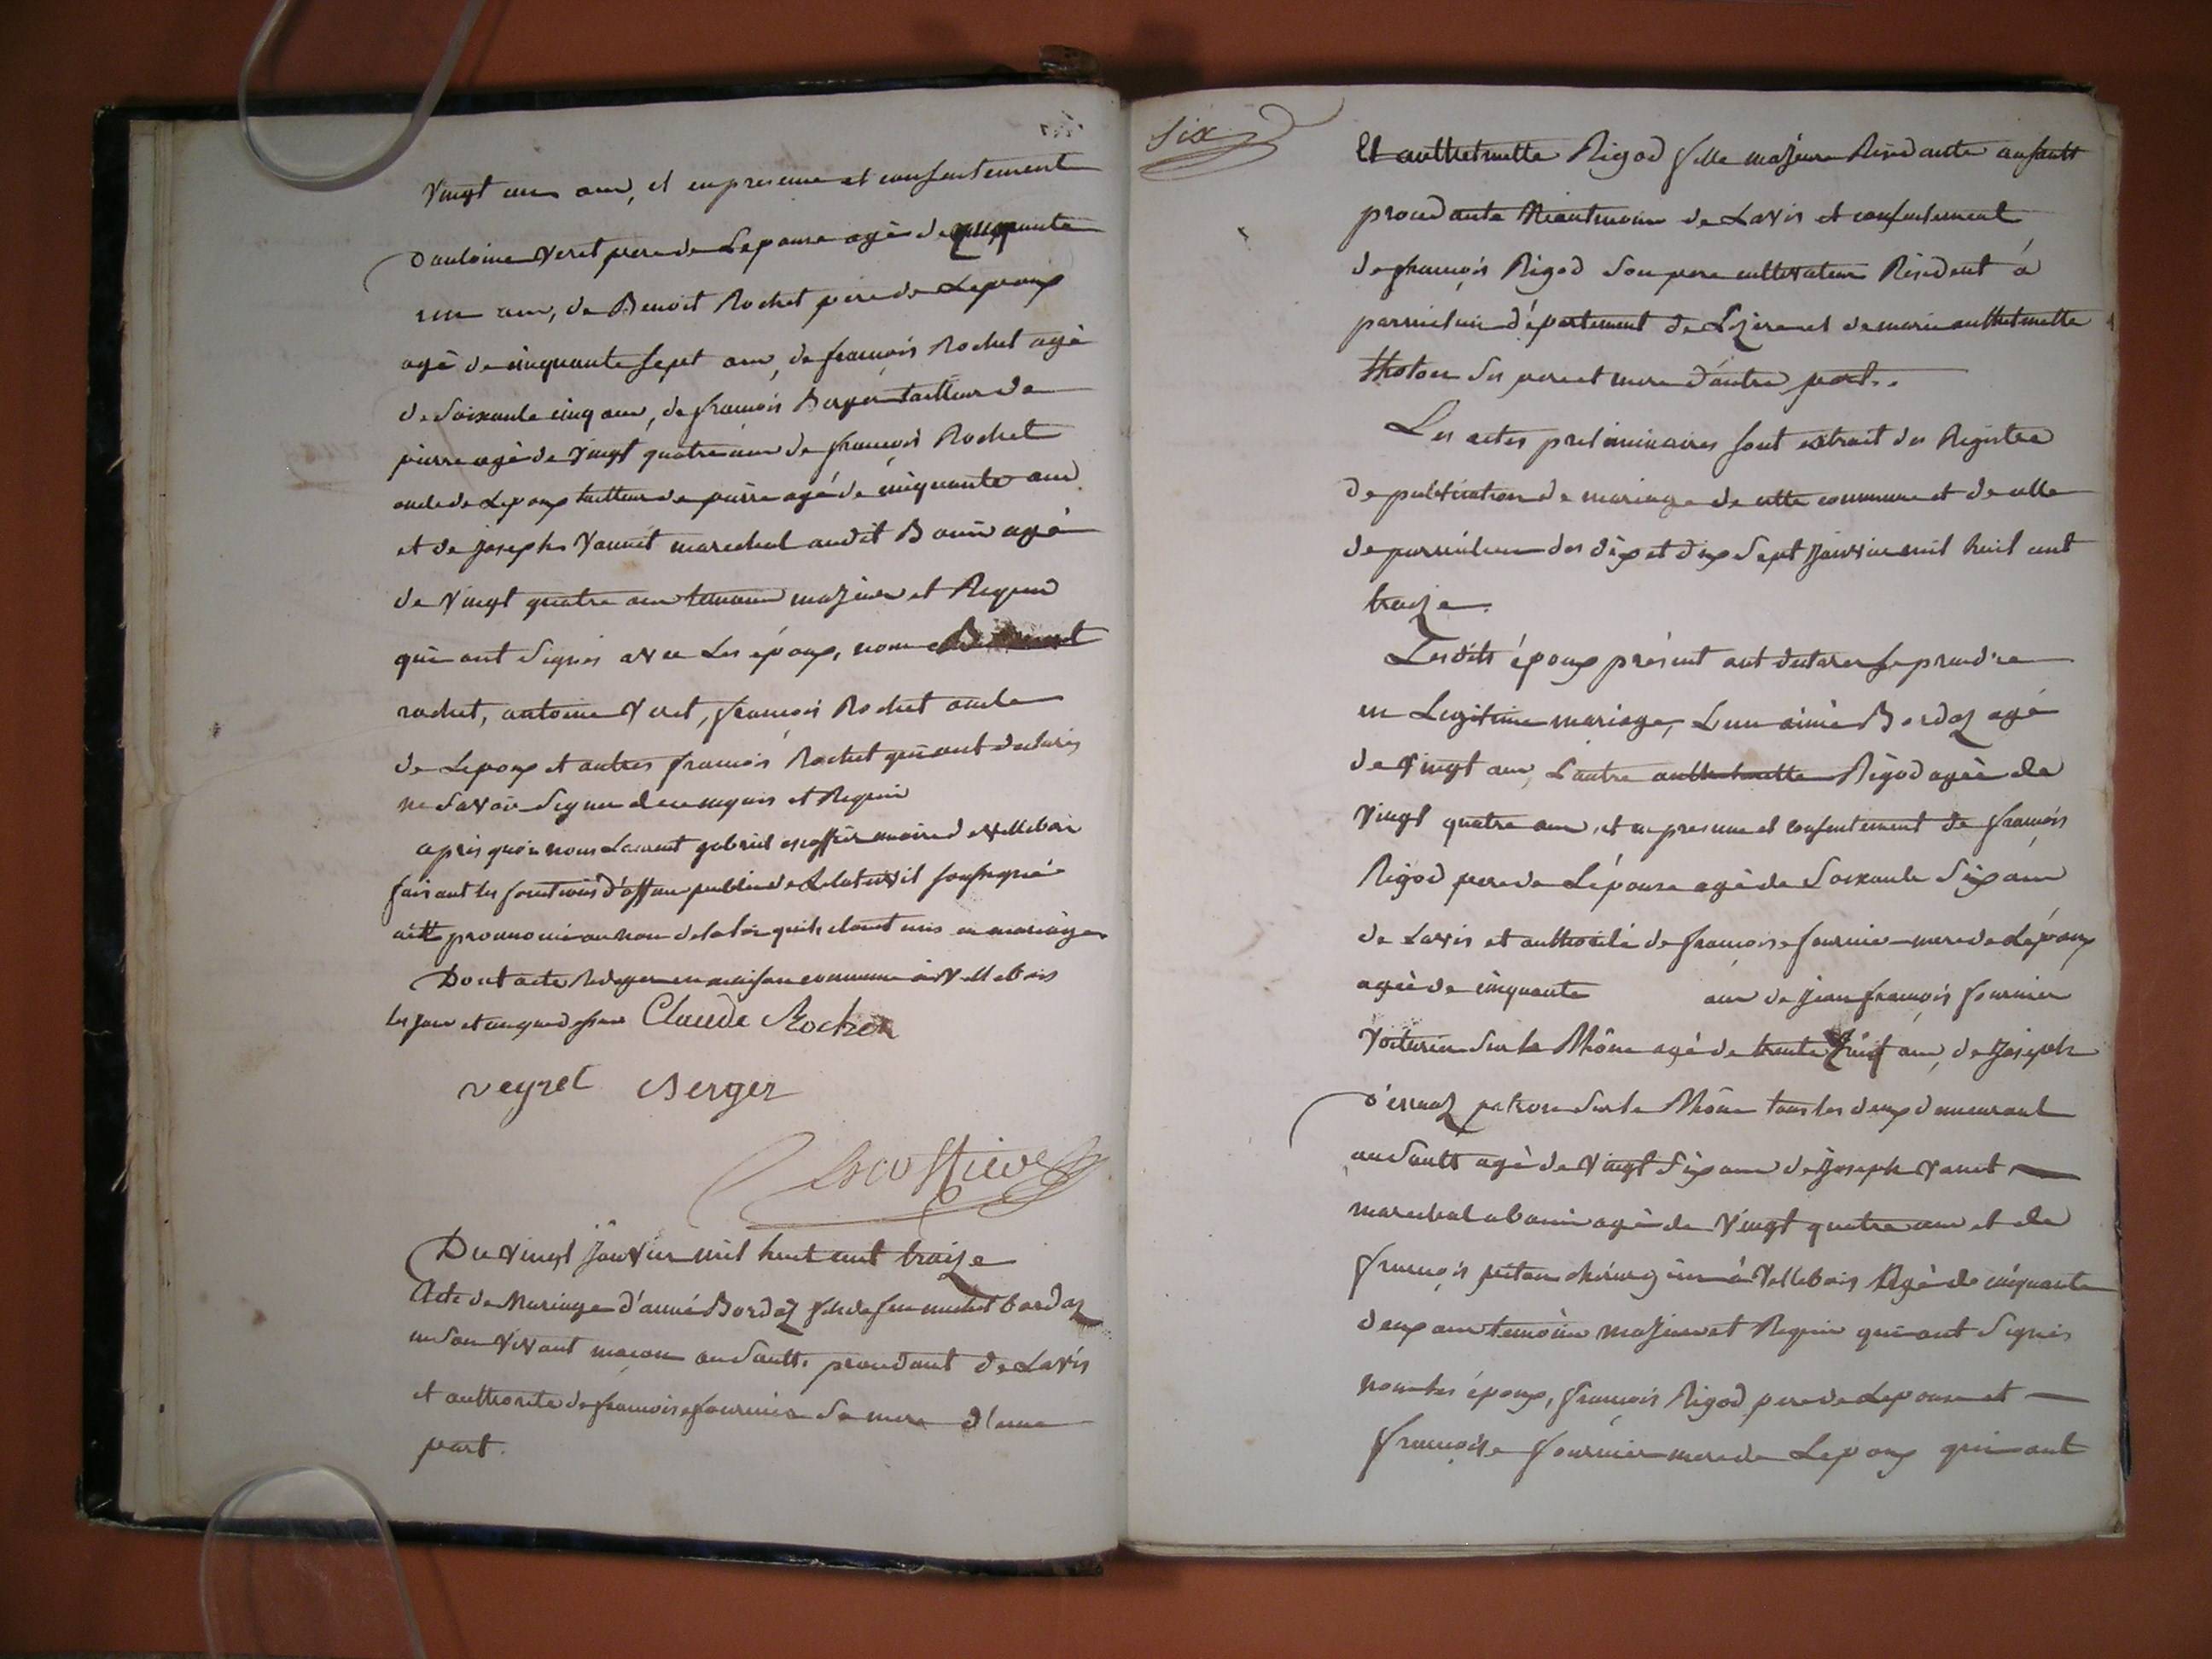 Vingt un ans, et en presence et consentement
d'antoine Veret pere de Lepouse agé de cinquante
un ans, de Benoit Rochet pere de Lepoux
agé de cinquante sept ans, de françois Rochet agé
de soixante cinq ans, de françois Berger tailleur de
pierre agé de vingt quatre ans de françois Rochet
oncle de Lepoux tailleur de pierre agé de cinquante ans
et de Joseph Vannet marechal audit Bouis agé
de vingt quatre ans temoins majeurs et Requis
qui ont signés avec Les époux, non
rochet, antoine Veret, françois Rochet oncle
de Lepoux et autres françois Rochet qui ont declarés
ne savoir signer de ce enquis et Requis
apres quoi nous Laurent gabriel escoffier maire de villebois
faisant les fonctions d'officier public de Lelat civil soussigné
prononcé au nom de la loi quils etoient unis en mariage
Dont acte Rediger en maison commune à Villebois
les jour et an que dessus Claude Rochet
veyret Berger
Escoffier
Du vingt Janvier mil huit cent traize
Acte de Mariage d'aimé Bordaz fils de feu michel bordaz
en son vivant macon au Sault procedant de Lavis
et authorité de françoise fournier sa mere d'une
part.
Six
Et anthelmette Rigod fille majeure Residante au sault
procedante Neantmoin de Lavis et consentement
de françois Rigod son pere cultivateur Résident à
département de et de marie anthelmette
tholon ses pere et mere d'autre part.
Les actes preliminaires sont extrait des Registre
de publication de mariage de cette commune et de celle
de des dix et dix sept Janvier mil huit cent
traize.
Lesdits époux présent ont declarer se prendre
en Legitime mariage, L'un aimé Bordaz agé
de vingt ans, L'autre anthelmette Rigod agée de
vingt quatre ans, et en presence et consentement de françois
Rigod pere de L'épouse agé de Soixante Six ans
de Lavis et authorité de françoise fournier mere de Lépoux
agée de cinquante ans de Jean françois fournier
Voiturier sur le Rhône agé de trente huit ans, de Joseph
patron sur le Rhône tous les deux demeurant
au Sault agé de vingt Six ans de Joseph Vanet
marechal a bouis agé de vingt quatre ans et de
françois chirurgien à Villebois Agé de cinquante
deux ans temoins majeurs et Requis qui ont signés
non les époux, françois Rigod pere de Lepouse et
françoise fournier mere de Lepoux qui ont